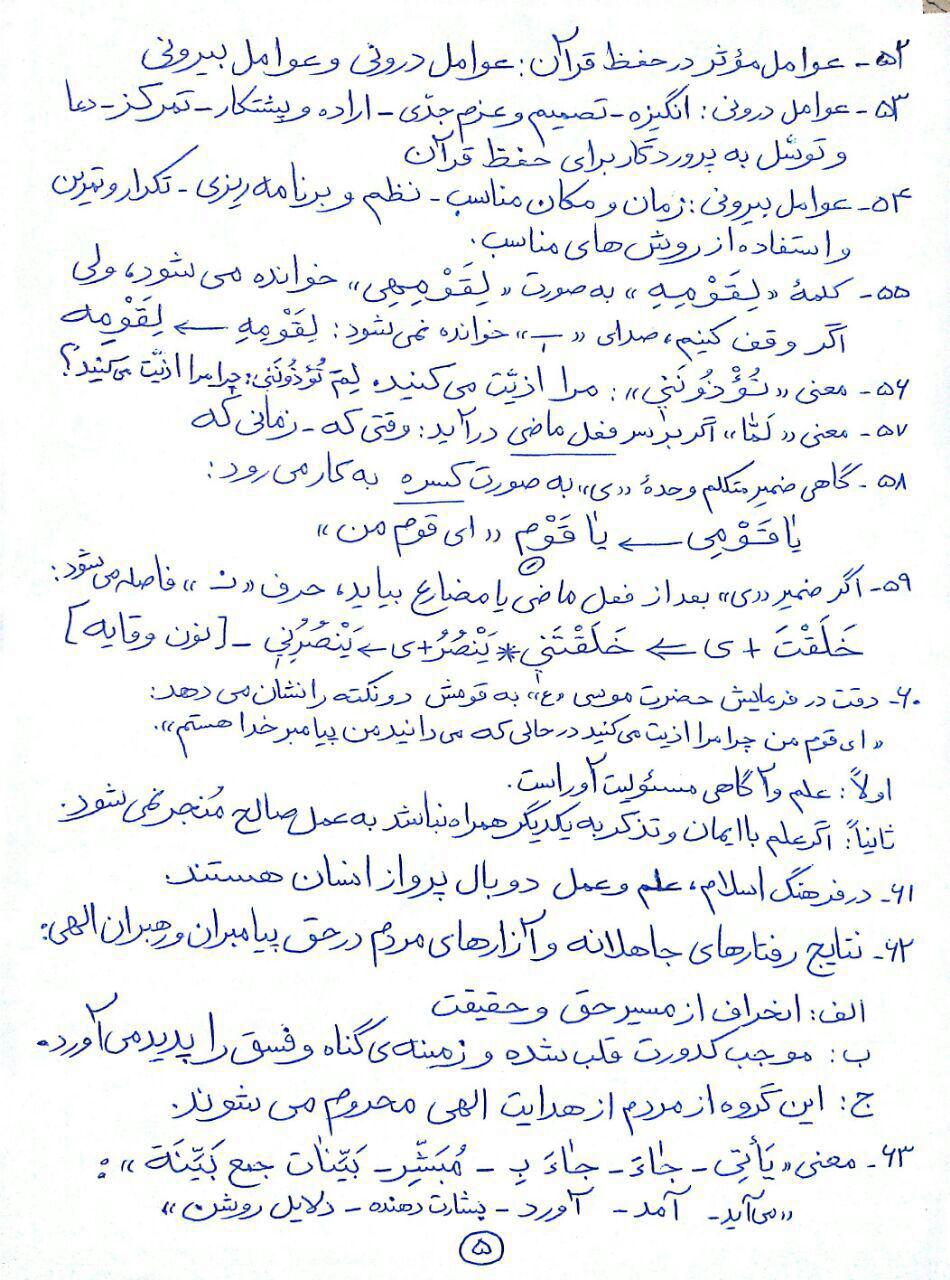 ۵۲- عوامل مؤثر در حفظ قرآن: عوامل درونی و عوامل بیرونی
۵۳- عوامل درونی: انگیزه - تصمیم و عزم جدّی - اراده و پشتکار - تمرکز - دعا
و توسّل به پروردگار برای حفظ قرآن
۵۴- عوامل بیرونی: زمان و مکان مناسب - نظم و برنامه ریزی - تکرار و تمرین
و استفاده از روش های مناسب.
۵۵- کلمهٔ «لِقَوْمِهِ» به صورت «لِقَوْمِهِی» خوانده می شود، ولی
اگر وقف کنیم، صدای «ـِ» خوانده نمی شود: لِقَوْمِهِ ← لِقَوْمِه
۵۶- معنی «تُؤْذُونَنِي»: مرا اذیّت می کنید. لِمَ تُؤذُونَنِي: چرا مرا اذیّت می کنید؟
۵۷- معنی «لَمّا» اگر بر سر فعل ماضی در آید: وقتی که - زمانی که
۵۸- گاهی ضمیر متکلم وحدهٔ «ی» به صورت کسره به کار می رود:
یا قَوْمِی ← یا قَوْمِ «ای قوم من»
۵۹- اگر ضمیر «ی» بعد از فعل ماضی یا مضارع بیاید، حرف «ن» فاصله می شود:
خَلَقْتَ + ی ⇐ خَلَقْتَنِي * یَنْصُرُ + ی ← یَنْصُرُنِي - [نون وقایه]
۶۰- دقت در فرمایش حضرت موسی «ع» به قومش دو نکته را نشان می دهد:
«ای قوم من چرا مرا اذیت می کنید در حالی که می دانید من پیامبر خدا هستم».
اولاً: علم و آگاهی مسئولیت آور است.
ثانیاً: اگر علم با ایمان و تذکر به یکدیگر همراه نباشد به عمل صالح مُنجر نمی شود.
۶۱- در فرهنگ اسلام، علم و عمل دو بال پرواز انسان هستند.
۶۲- نتایج رفتارهای جاهلانه و آزارهای مردم در حق پیامبران و رهبران الهی:
الف: انحراف از مسیر حق و حقیقت
ب: موجب کدورت قلب شده و زمینه ی گناه و فسق را پدید می آورد.
ج: این گروه از مردم از هدایت الهی محروم می شوند.
۶۳- معنی «یَأتِی - جاءَ - جاءَ بِ - مُبَشِّر - بَیِّنات جمع بَیِّنَة»:
«می آید - آمد - آورد - بشارت دهنده - دلایل روشن»
۵